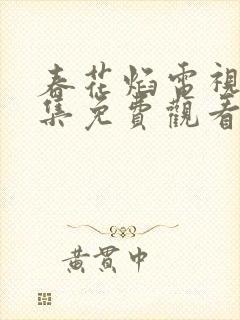 春花焰電視
集免費觀看
黃貫中